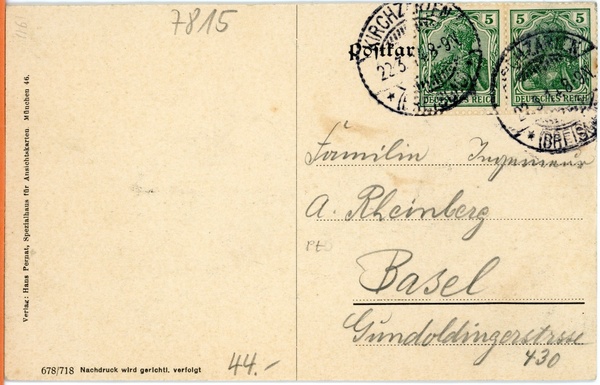 7815
Postkar
KIRCHZARTEN
22.3. 8-9N.
(BREISG
5
5
DEUTSCHES REICH
DEUTSCHES REICH
Familie Ingenieur
A. Rheinberg
Basel
Gundoldingerstrasse
430
Verlag: Hans Pernat, Spezialhaus für Ansichtskarten. München 46.
678/718 Nachdruck wird gerichtl. verfolgt
44.-